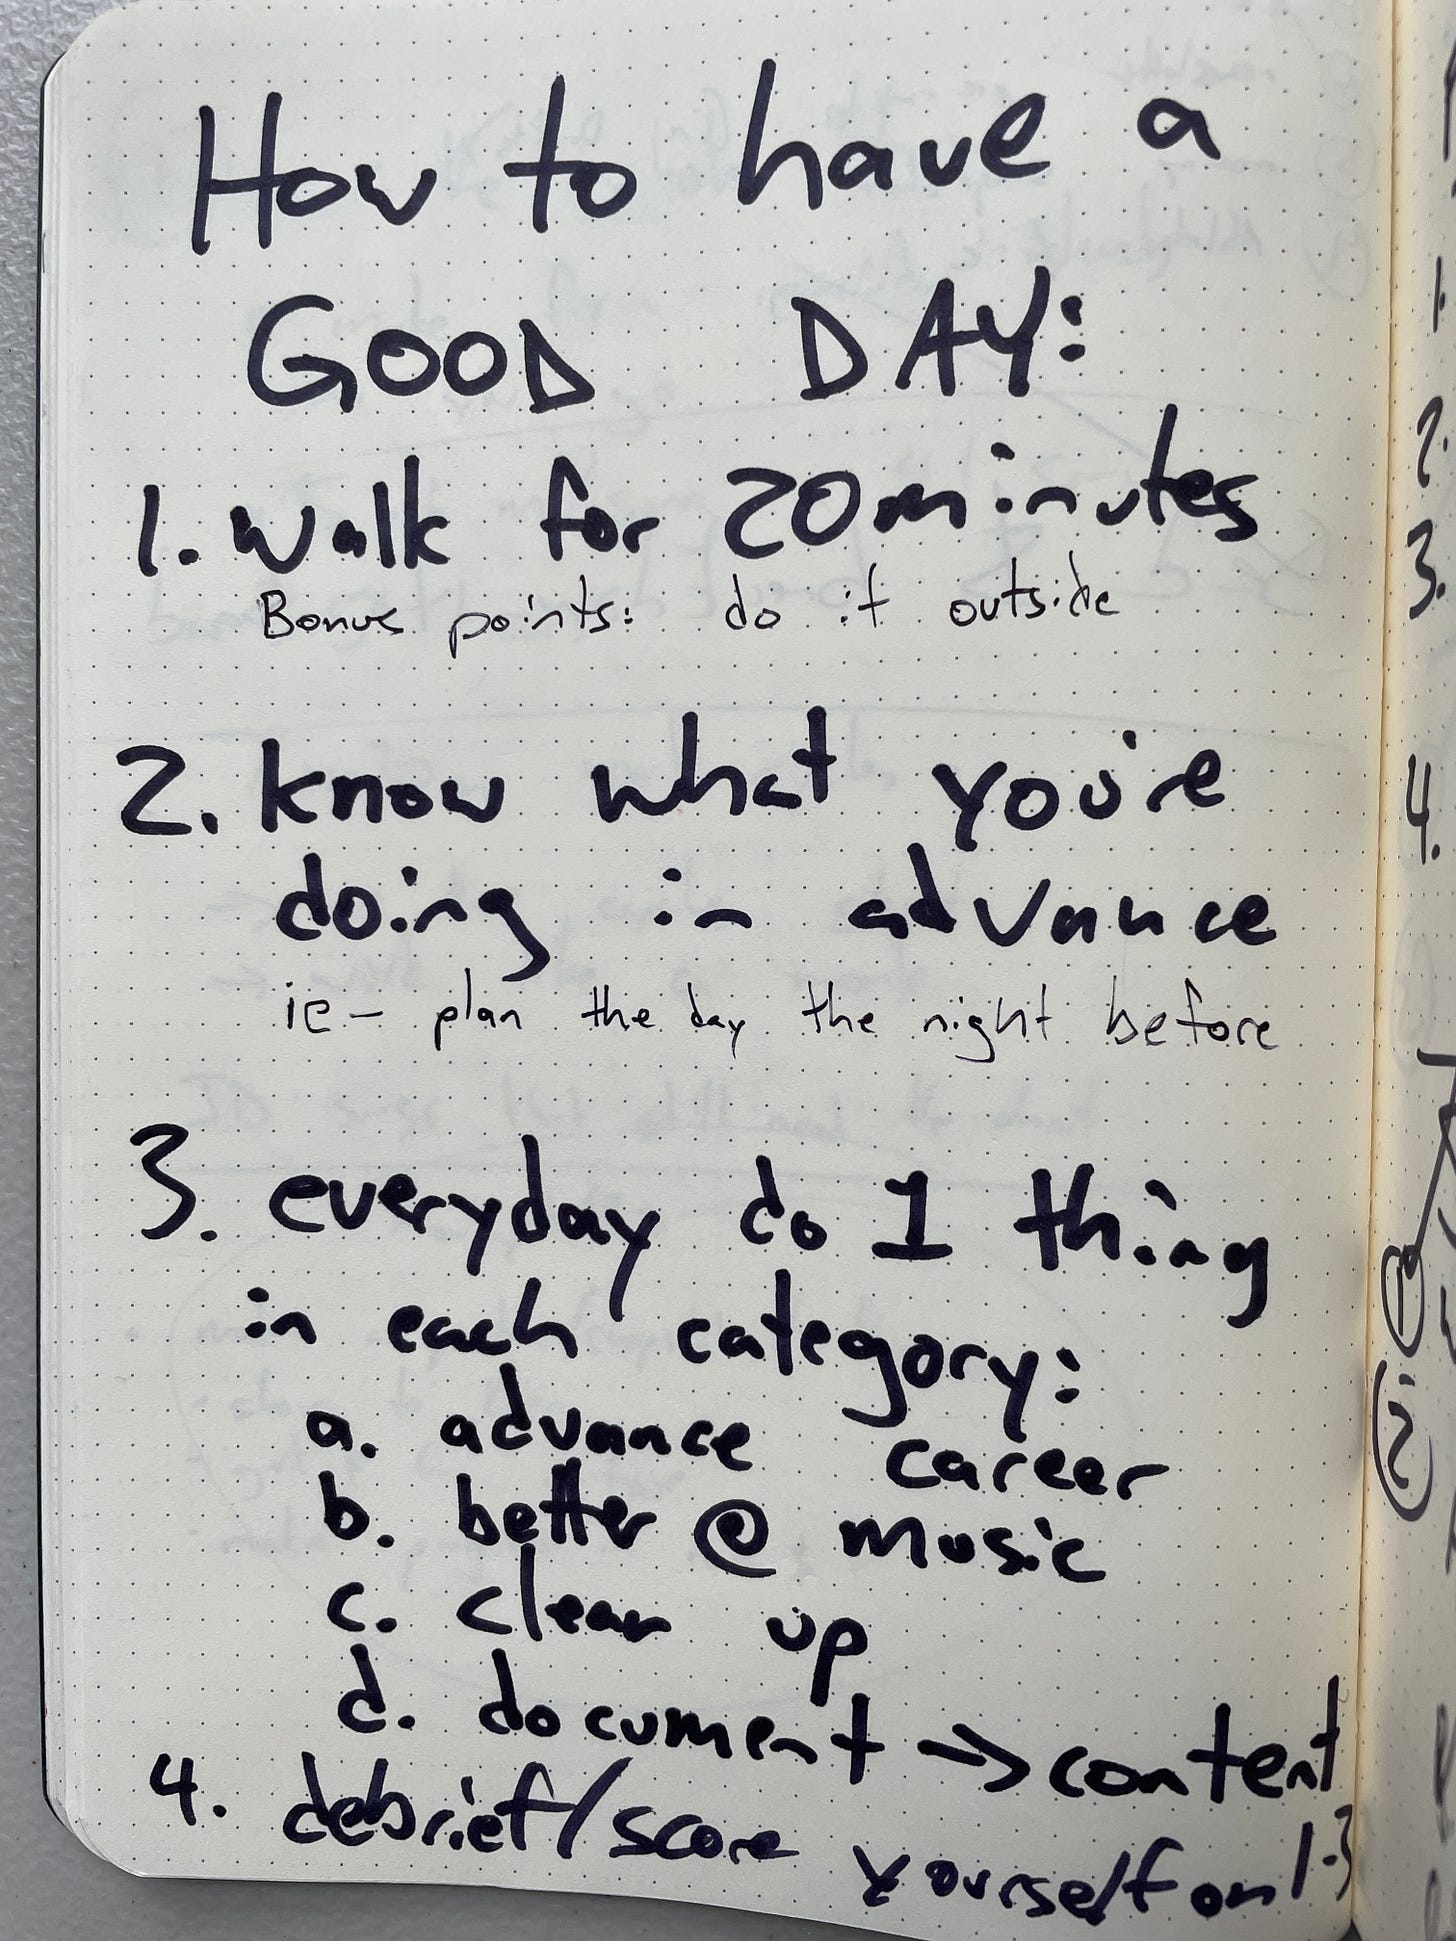 How to have a
GOOD DAY:
1. walk for 20 minutes
Bonus points: do it outside
2. know what you're
doing in advance
ie - plan the day the night before
3. everyday do 1 thing
in each category:
a. advance career
b. better @ music
c. clean up
d. document → content
4. debrief/score yourself on 1-3
1.
2.
3.
4.